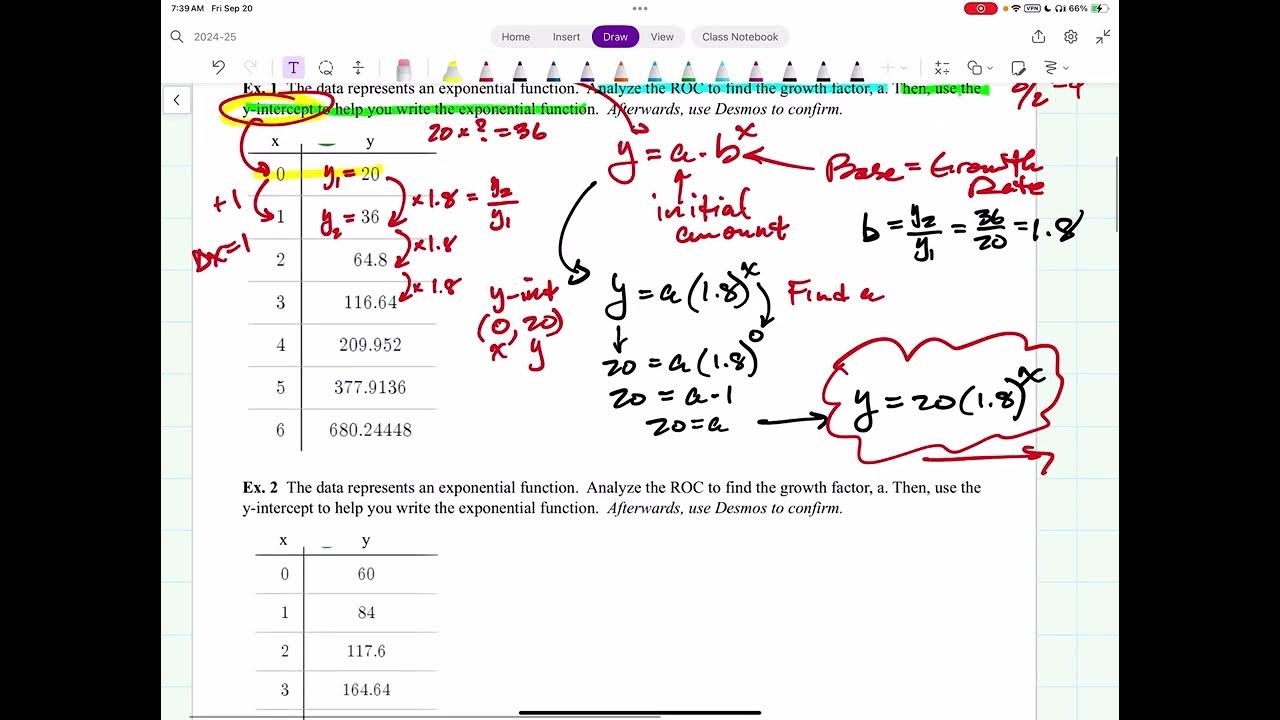 7:39 AM Fri Sep 20
VPN 66%
2024-25
Home Insert Draw View Class Notebook
Ex. 1 The data represents an exponential function. Analyze the ROC to find the growth factor, a. Then, use the
y-intercept to help you write the exponential function. Afterwards, use Desmos to confirm.
20 × ? = 36
x y
0 y₁ = 20
1 y₂ = 36
2 64.8
3 116.64
4 209.952
5 377.9136
6 680.24448
+1
Δx=1
×1.8 = y₂/y₁
×1.8
×1.8
y-int
(0, 20)
x y
y = a · b^x
initial
amount
Base = Growth
Rate
b = y₂/y₁ = 36/20 = 1.8
y = a(1.8)^x
Find a
20 = a(1.8)^0
20 = a · 1
20 = a
y = 20(1.8)^x
Ex. 2 The data represents an exponential function. Analyze the ROC to find the growth factor, a. Then, use the
y-intercept to help you write the exponential function. Afterwards, use Desmos to confirm.
x y
0 60
1 84
2 117.6
3 164.64